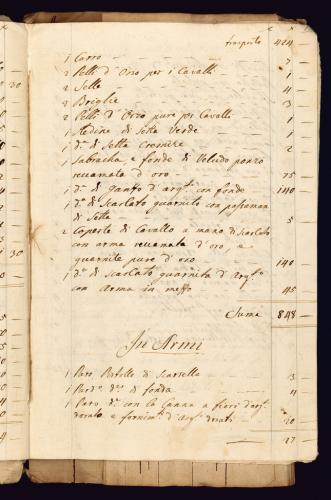 trasporto 424
1 Carro — 7
2 Pelli d'Orso per i Cavalli — 1
2 Selle — 4
2 Briglie — 3
2 Pelli d'Orso pure per Cavalli — 1
1 Redine di Seta Verde — 1
1 d.e di Setta Cremere — 2
1 Sabracha e fonde di Veludo ponzo
recamata d'oro — 75
1 d.a di Ganzo d'arg.to con fonde — 140
1 d.a di Scarlato guarnito con passaman
di Setta — 5
2 Coperte di Cavallo a mano di Scarlato
con arma recamata d'oro, e
guarnite pure d'oro — 140
1 d.a di Scarlato guarnita d'Arg.to
con Arma in meffo — 45
Suma 848 —
In Armi
1 Paro Pistolle di Scarsella — 3
1 Par d.e di fonda — 11
1 Paro d.e con la Canna a fiori d'arg.
dorato e fornim.ti d'Arg. dorati — 20
27
30
30